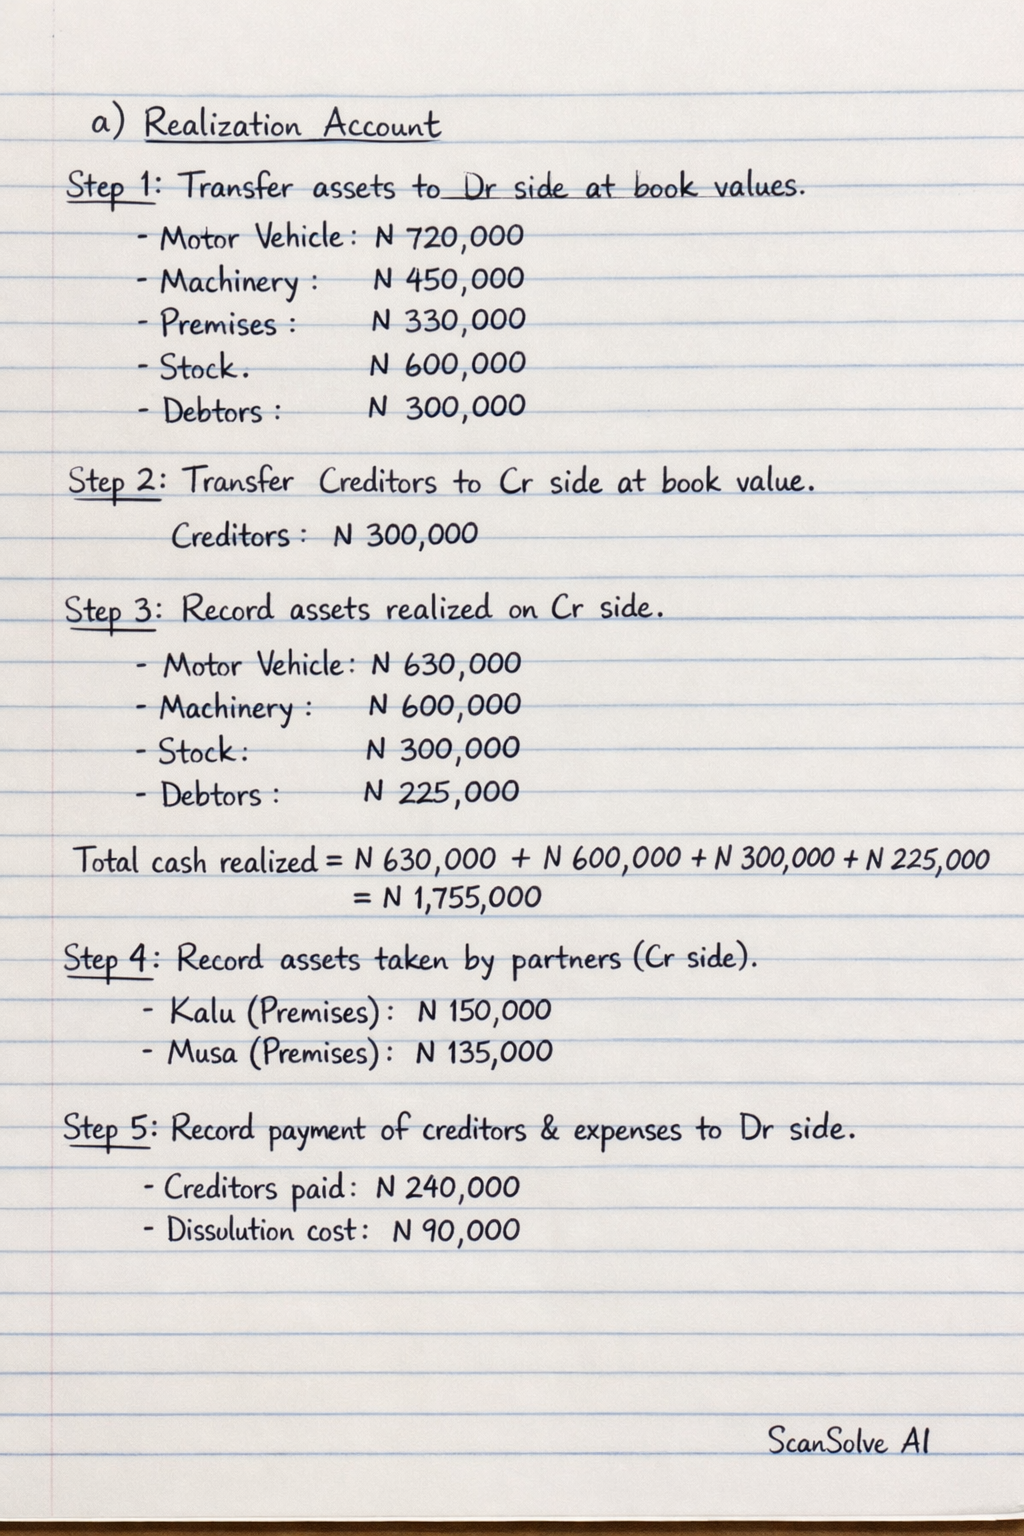 a) Realization Account
Step 1: Transfer assets to Dr side at book values.
- Motor Vehicle: N 720,000
- Machinery : N 450,000
- Premises : N 330,000
- Stock. N 600,000
- Debtors : N 300,000
Step 2: Transfer Creditors to Cr side at book value.
Creditors : N 300,000
Step 3: Record assets realized on Cr side.
- Motor Vehicle: N 630,000
- Machinery : N 600,000
- Stock: N 300,000
- Debtors : N 225,000
Total cash realized = N 630,000 + N 600,000 + N 300,000 + N 225,000
= N 1,755,000
Step 4: Record assets taken by partners (Cr side).
- Kalu (Premises) : N 150,000
- Musa (Premises) : N 135,000
Step 5: Record payment of creditors & expenses to Dr side.
- Creditors paid: N 240,000
- Dissulution cost: N 90,000
ScanSolve AI